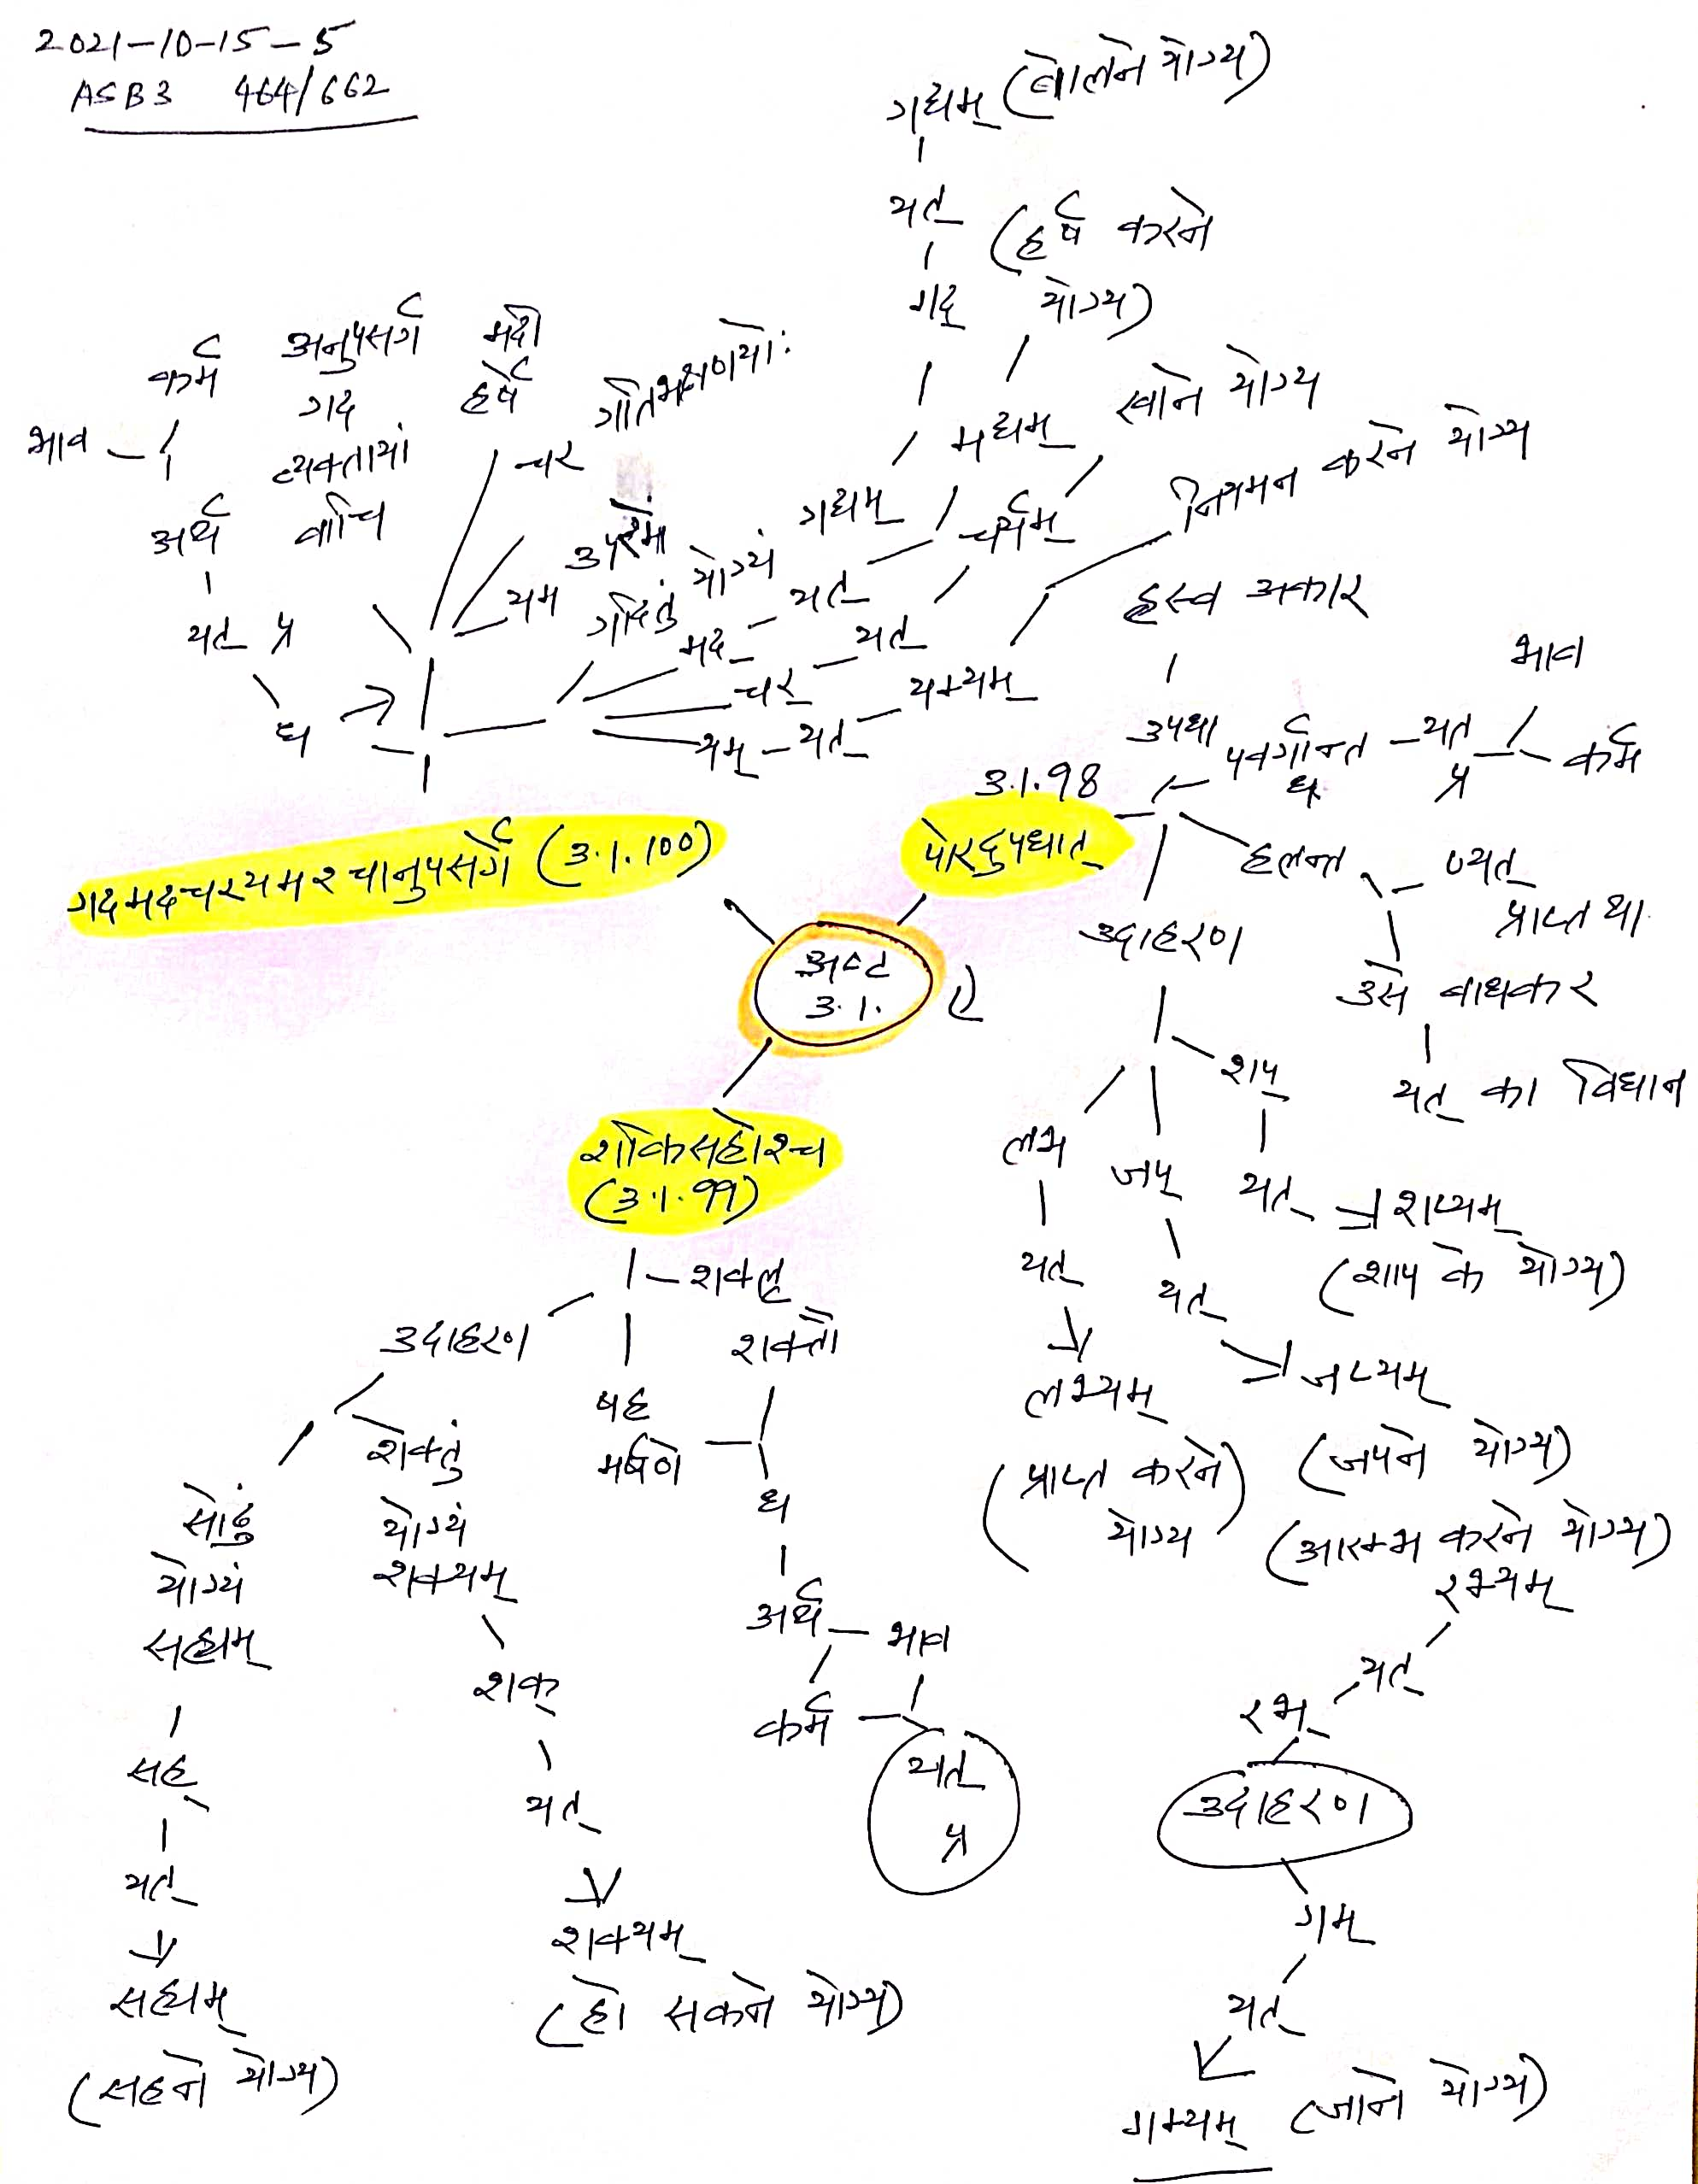 2021-10-15-5
ASB3 464/662
गद्यम् (बोलने योग्य)
यत्
(हर्ष करने
गद्
योग्य)
कर्म
भाव
अर्थ
यत् प्र
ध
अनुपसर्ग
गद
व्यक्तायां
वाचि
मदी
हर्षे
चर
गतिभक्षणयोः
यम
उपरमे
गदितुं योग्यं
गद्यम्
मद्यम्
खाने योग्य
मद् यत्
चर्यम्
नियमन करने योग्य
चर् यत्
यम् यत्
यम्यम्
ह्रस्व अकार
उपधा
पवर्गान्त
ध
यत्
प्र
भाव
कर्म
3.1.98
पोरदुपधात्
हलन्त
ण्यत्
प्राप्त था
उसे बाधकर
यत् का विधान
गदमदचरयमश्चानुपसर्गे (3.1.100)
अष्ट
3.1.
उदाहरण
लभ
यत्
लभ्यम्
(प्राप्त करने
योग्य)
जप्
यत्
जप्यम्
(जपने योग्य)
शप्
यत्
शप्यम्
(शाप के योग्य)
(आरम्भ करने योग्य)
रभ्यम्
यत्
रभ्
उदाहरण
गम्
यत्
गम्यम् (जाने योग्य)
शकिसहोश्च
(3.1.99)
शक्लृ
शक्तौ
षह
मर्षणे
ध
अर्थ
भाव
कर्म
यत्
प्र
उदाहरण
शक्तुं
योग्यं
शक्यम्
शक्
यत्
शक्यम्
(हो सकने योग्य)
सोढुं
योग्यं
सह्यम्
सह्
यत्
सह्यम्
(सहने योग्य)